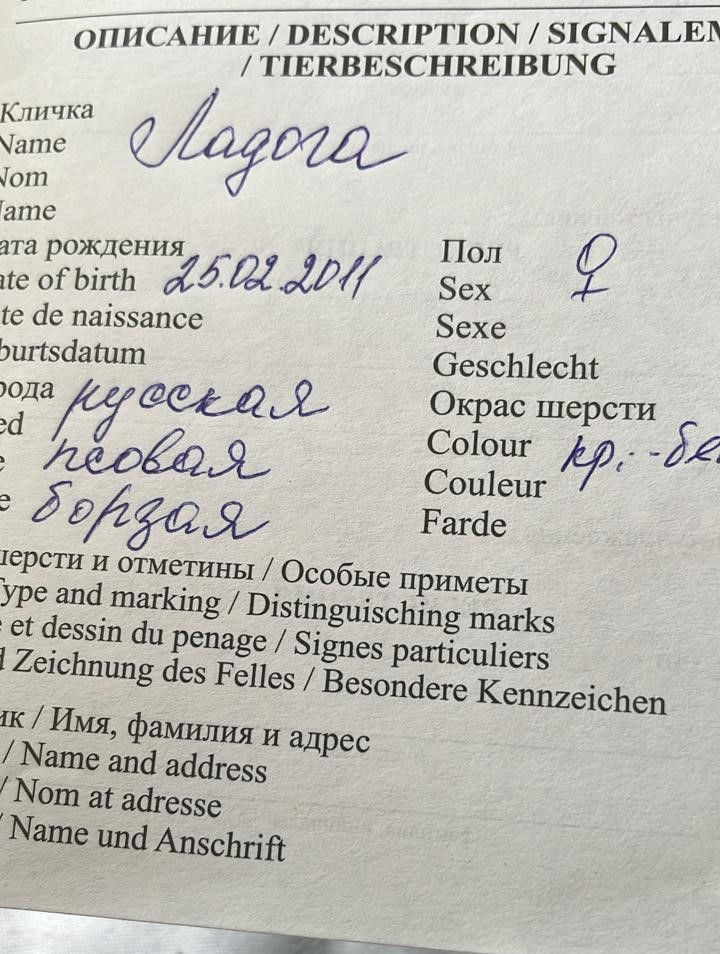 ОПИСАНИЕ / DESCRIPTION / SIGNALEM
/ TIERBESCHREIBUNG
Кличка
Name
Nom
Name
Ладога
ата рождения
ate of birth 25.02.2011
te de naissance
burtsdatum
Пол
Sex ♀
Sexe
Geschlecht
рода русская
ed псовая
e борзая
Окрас шерсти
Colour кр.-бе
Couleur
Farde
шерсти и отметины / Особые приметы
Type and marking / Distinguisching marks
e et dessin du penage / Signes particuliers
d Zeichnung des Felles / Besondere Kennzeichen
ик / Имя, фамилия и адрес
/ Name and address
/ Nom at adresse
/ Name und Anschrift